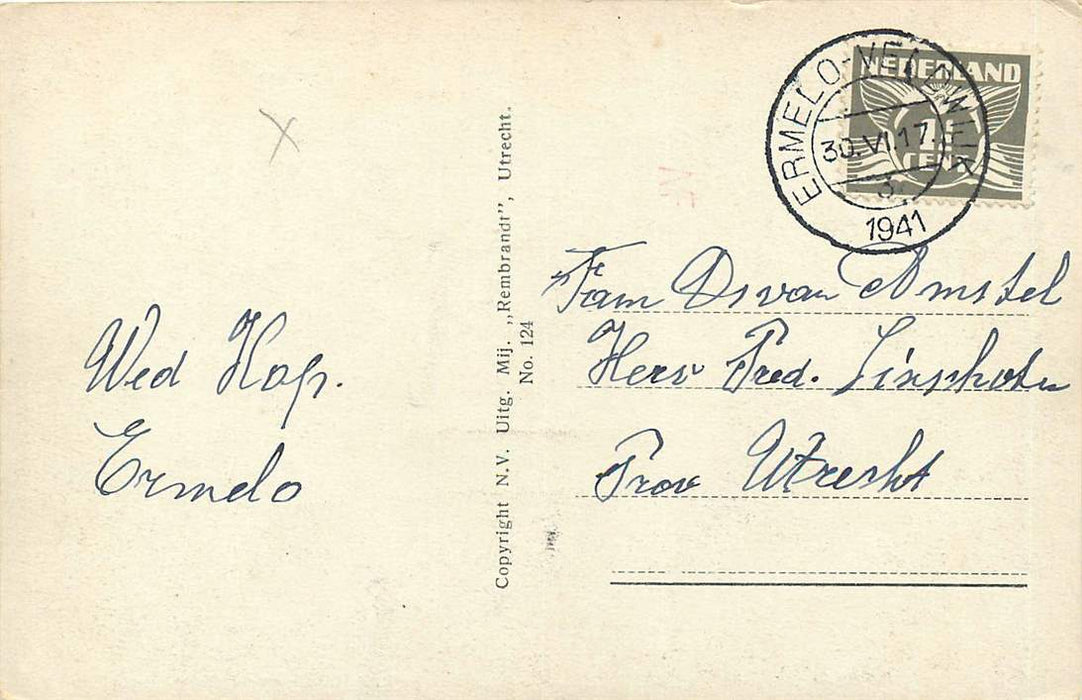 ERMELO-VELDWIJK
30.VI.17.
3.
1941
NEDERLAND
CENT
Copyright N.V. Uitg. Mij. „Rembrandt”, Utrecht.
No. 124
Wed Kap.
Ermelo
Fam Ds van Amstel
Herv Pred. Linschoten
Prov Utrecht